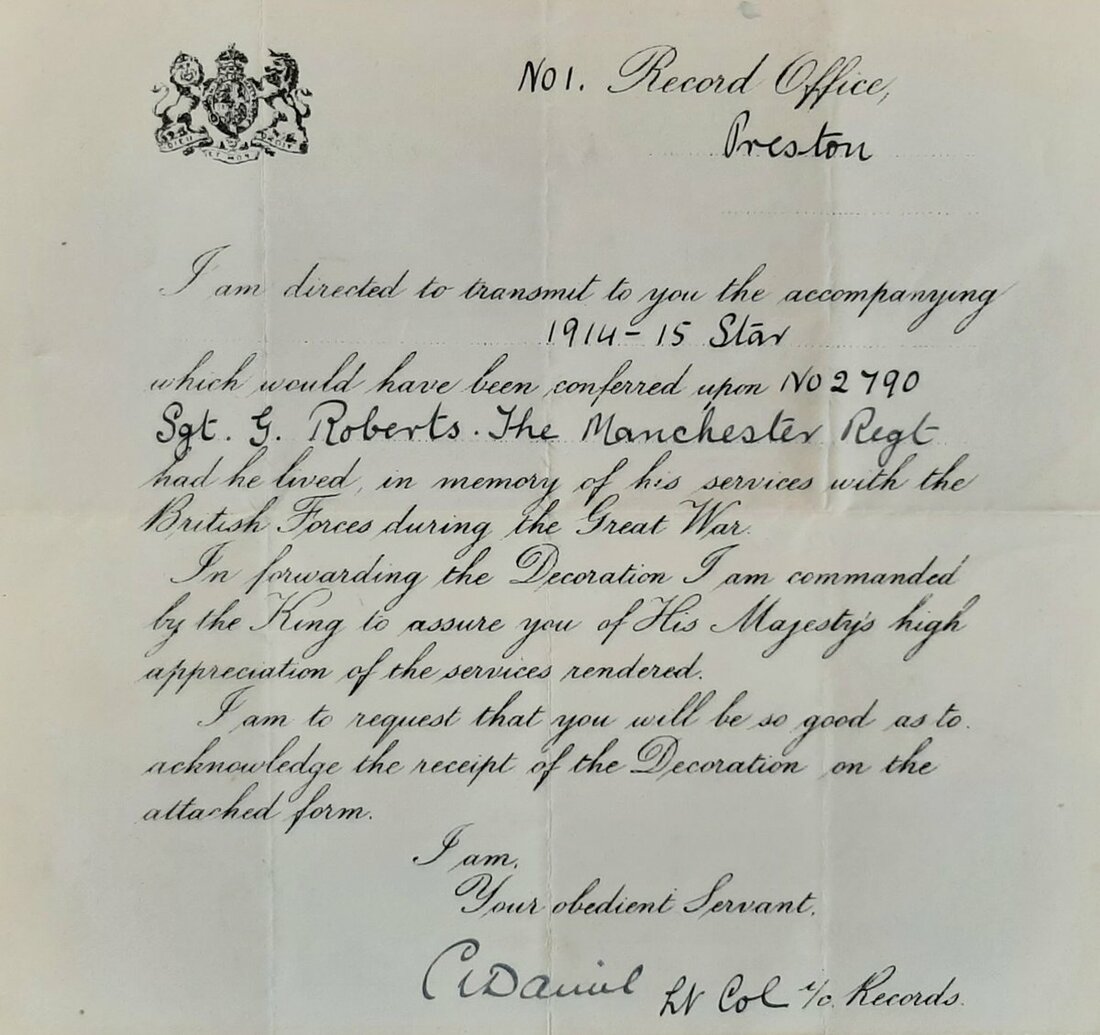 DIEU ET MON DROIT
No 1. Record Office,
Preston
I am directed to transmit to you the accompanying
1914-15 Star
which would have been conferred upon No 2790
Sgt. G. Roberts. The Manchester Regt
had he lived, in memory of his services with the
British Forces during the Great War.
In forwarding the Decoration I am commanded
by the King to assure you of His Majesty's high
appreciation of the services rendered.
I am to request that you will be so good as to
acknowledge the receipt of the Decoration on the
attached form.
I am,
Your obedient Servant,
Daniel Lt Col i/c. Records.